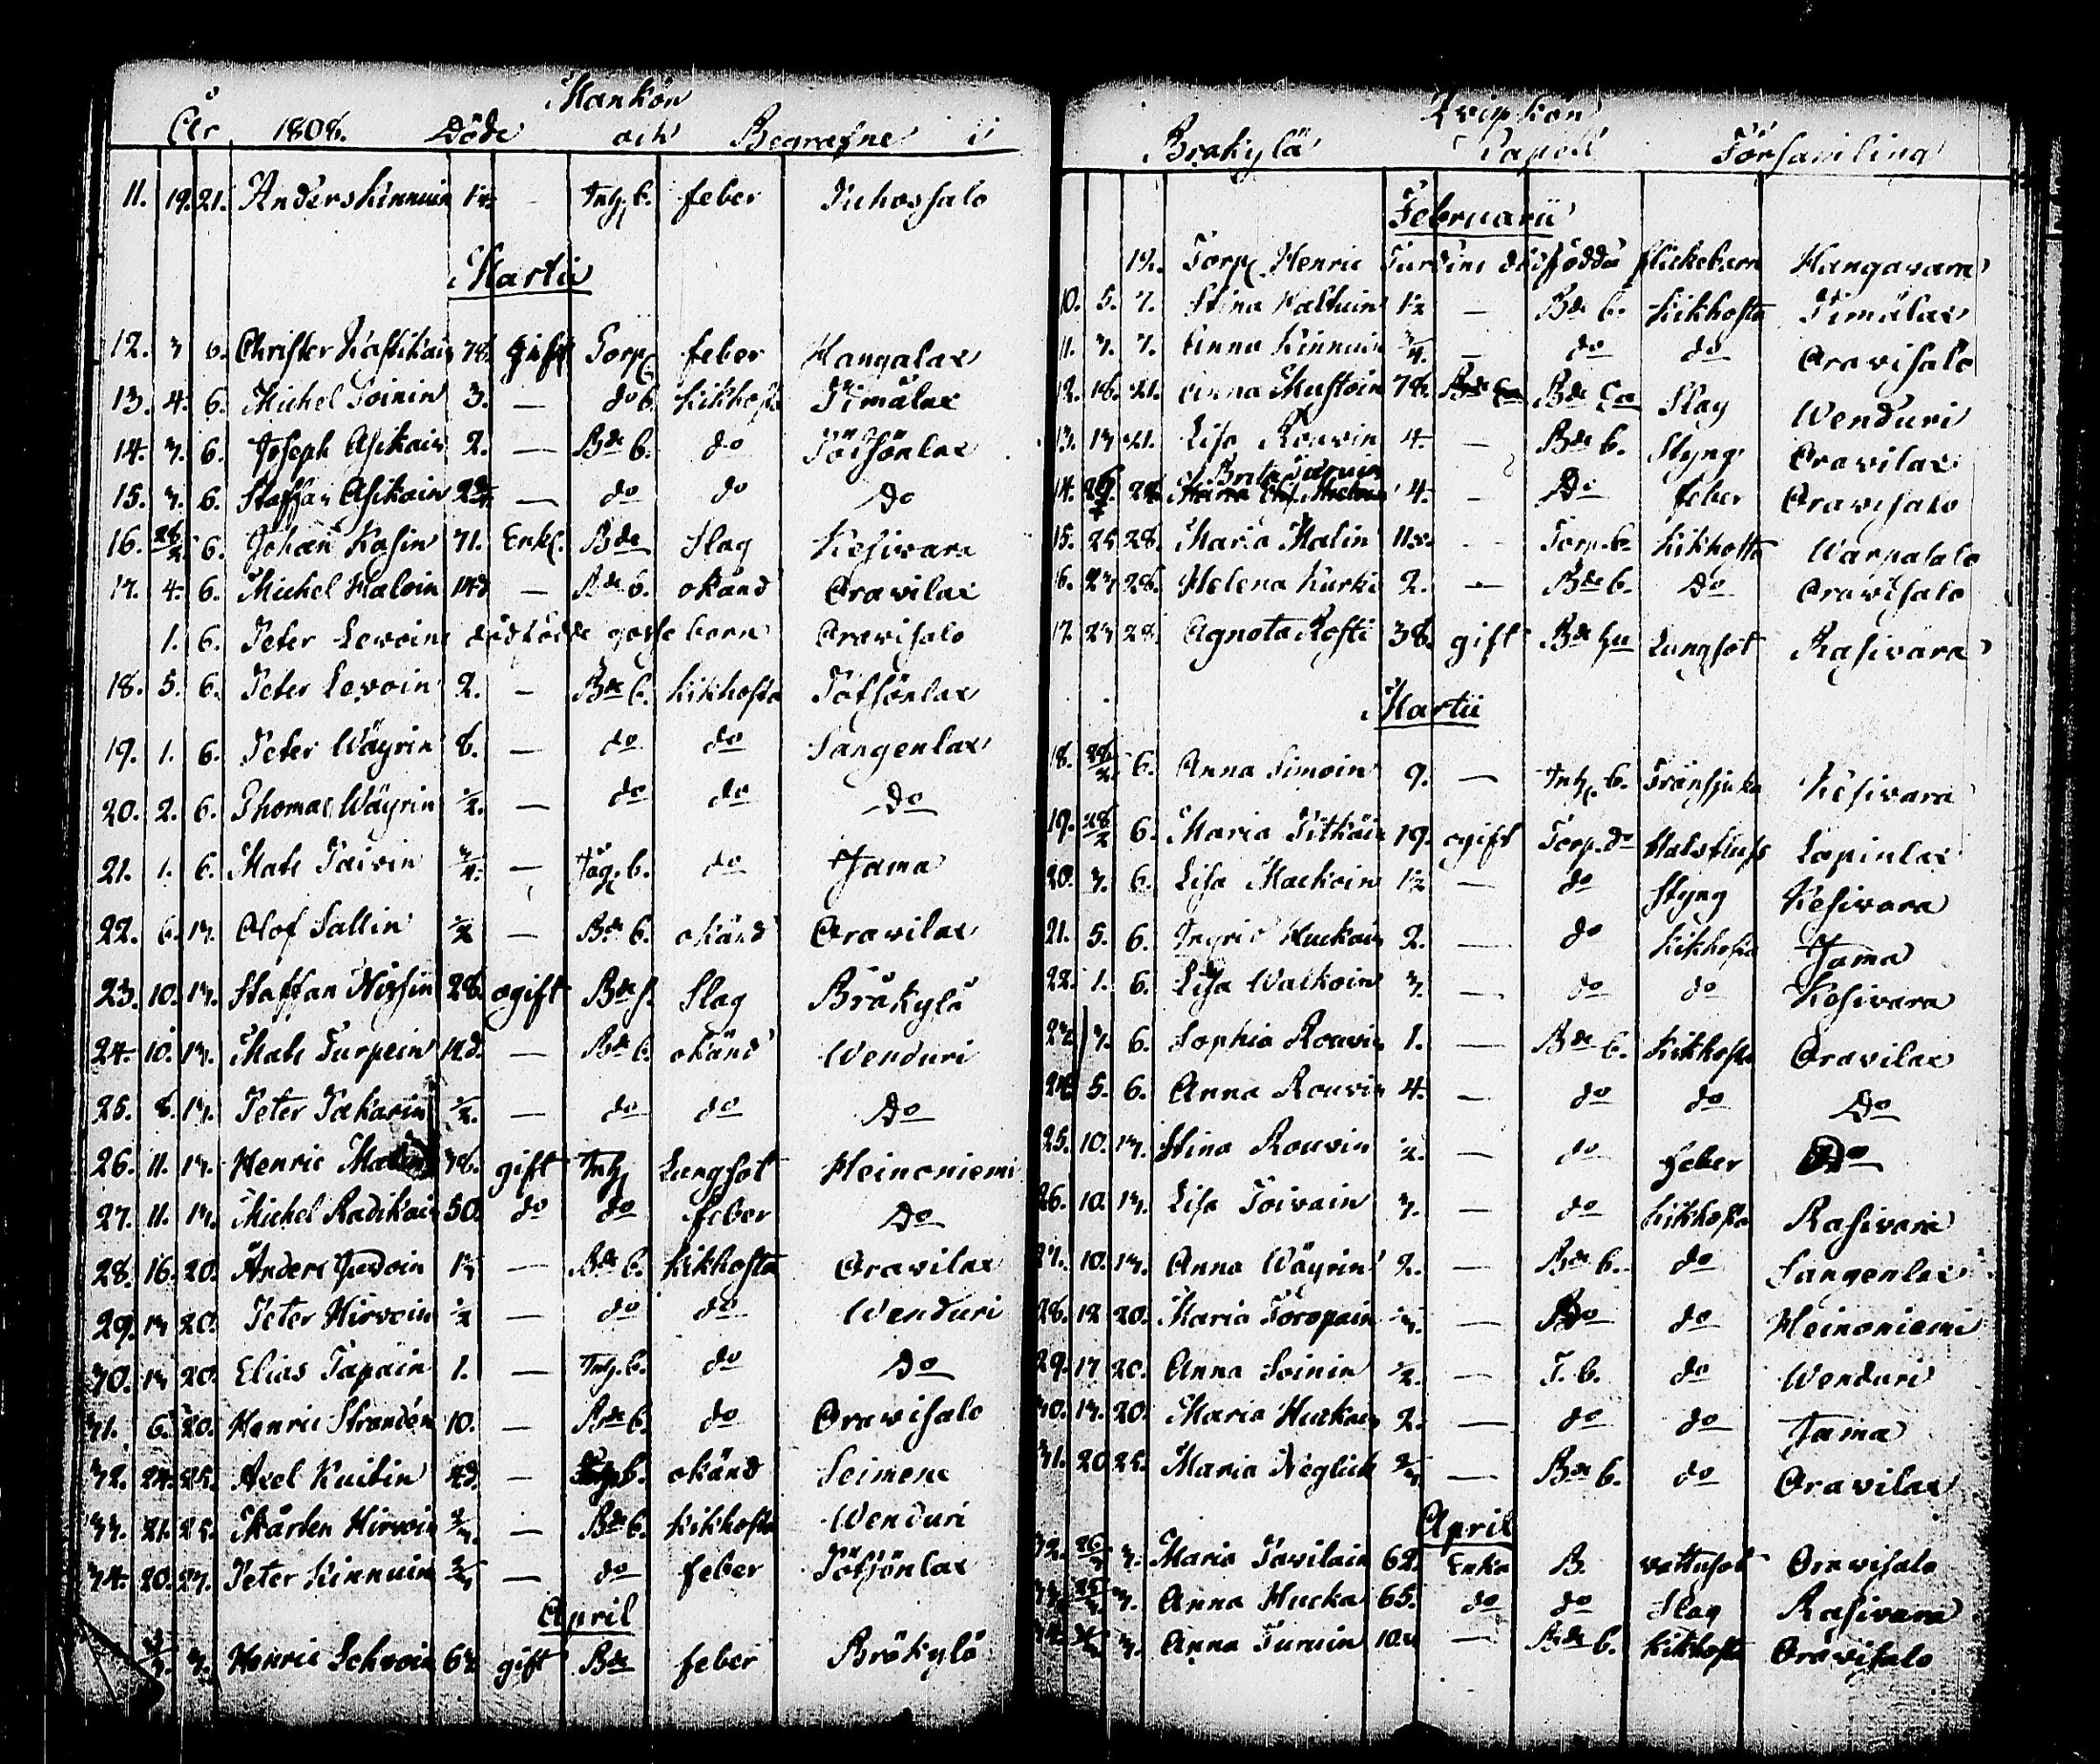 Mankön
År 1808. Döde och Begrafne i
11. 19. 21. Anders Kinnuin — Inh. b. feber Puhossalo
Martii
12. 3 6. Christer Kastikain 78. gift Torp. feber Kangalax
13. 4. 6. Michel Soinin 3. — do b. kikhosta Pimälax
14. 3. 6. Joseph Asikain 2. — Bde b. do Pötsönlax
15. 3. 6. Staffan Asikain — do do Do
16. 28/2 6. Johan Kosin 71. Enkl. Bde Slag Kesivara
17. 4. 6. Michel Haloin 14d — Bde b. okänd Oravilax
1. 6. Peter Levoins dödfödde gosse barn Oravisalo
18. 5. 6. Peter Levoin 2. — Bde b. kikhosta Pötsönlax
19. 1. 6. Peter Wäyrin 8. — do do Sangenlax
20. 2. 6. Thomas Wäyrin 1/2. — do do Do
21. 1. 6. Mats Paivin 3/4. — b. do Jama
22. 6. 13. Olof Sallin 1/2 — Bde b. okänd Oravilax
23. 10. 13. Staffan Hirsin 28. ogift Bde s. Slag Bräkylä
24. 10. 13. Mats Turpein 14d. — Bde b. okänd Wenduri
25. 8. 13. Peter Pakarin 1/2. — do do Do
26. 11. 13. Henric 36. gift Inh. Lungsot Heinoniemi
27. 11. 13. Michel Radikain 50. do do feber Do
28. 16. 20. Anders Javoin — Bde b. kikhosta Oravilax
29. 13 20. Peter Hirvoin 1/2 — do do Wenduri
30. 13 20. Elias Tapain 1. — Inh. b. do Do
31. 6. 20. Henric Strandén 10. — Bde b. do Oravisalo
32. 24. 25. Axel Kuitin 4d. — b. okänd Seimene
33. 21. 25. Mårten Hirvoin 2/3. — Bde b. kikhosta Wenduri
34. 20. 27. Peter Kinnuin 2/3 — do feber Pötsönlax
April
3. Henric Lehvoin 63 gift Bde feber Bräkylä
Qvinkön
Bräkylä Capell Församling
Februarii
14. Torp. Henric Turdins dödfödda flickebarn Kangavara
10. 5. 7. Stina Haltuin 1 1/2 — Bde b. kikhosta Pimälax
11. 3. 7. Anna Kinnuin 3/4. — do do Oravisalo
12. 18. 21. Anna Mustoin 78. Bde Ea Slag Wenduri
13. 13 21. Lisa Rouvin 4. — Bde b. Styng Oravilax
14. 28. Brita 4. — Do feber Oravisalo
15. 25 28. Maria Malin — Torp. b. kikhosta Warpasalo
16. 23 28. Helena Kurki 2. — Bde b. Do Oravisalo
17. 23 28. Agneta Kosti 38. gift Bde hu Lungsot Rasivara
Martii
18. 28/2 6. Anna Simoin 9. — Inh. b. Kesivara
19. 28/2 6. Maria Pitkäin 19. ogift Torp. do Halsfluss Lapinlax
20. 3. 6. Lisa Mackoin 1 1/2 — do Styng Kesivara
21. 5. 6. Ingrid Huckain 2. — do kikhosta Jama
22. 1. 6. Lisa Walkoin 3. — do do Kesivara
23. 3. 6. Sophia Rouvin 1. — Bde b. kikhosta Oravilax
24. 5. 6. Anna Rouvin 4. — do do Do
25. 10. 13. Stina Rouvin 1/2. — do feber Do
26. 10. 13. Lisa Toivain 3. — do kikhosta Rasivara
27. 10. 13. Anna Wäyrin 2. — Bde b. do Sangenlax
28. 12 20. Maria Toropain 1/3. — Do do Heinoniemi
29. 17 20. Anna Soinin 1/2. — T. b. do Wenduri
30. 13. 20. Maria Huckain 2. — do do Jama
31. 20 25. Maria Neglick 2/3 — Bde b. do Oravilax
April
32. 26/3 3. Maria Pavilain 62. Enka B. vattusot Oravisalo
33. 3. Anna Hucka 65. do do Slag Rasivara
34. 3. Anna Turuin — Bde b. kikhosta Oravisalo